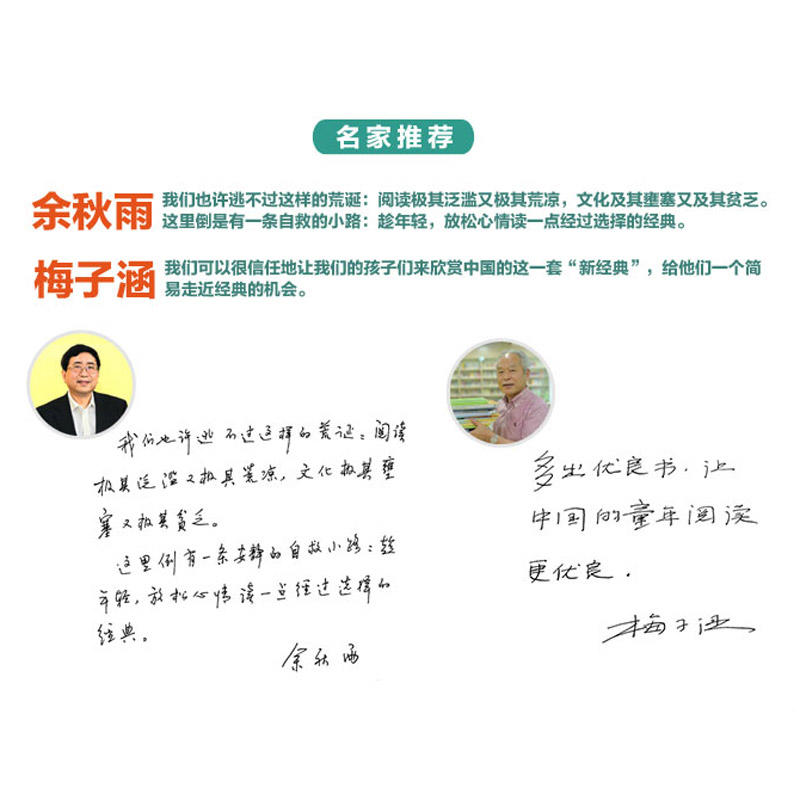 名家推荐
余秋雨
我们也许逃不过这样的荒诞：阅读极其泛滥又极其荒凉，文化及其壅塞又及其贫乏。
这里倒是有一条自救的小路：趁年轻，放松心情读一点经过选择的经典。
梅子涵
我们可以很信任地让我们的孩子们来欣赏中国的这一套“新经典”，给他们一个简
易走近经典的机会。
我们也许逃不过这样的荒诞：阅读
极其泛滥又极其荒凉，文化极其壅
塞又极其贫乏。
这里倒有一条安静的自救小路：趁
年轻，放松心情读一点经过选择的
经典。
余秋雨
多出优良书，让
中国的童年阅读
更优良.
梅子涵